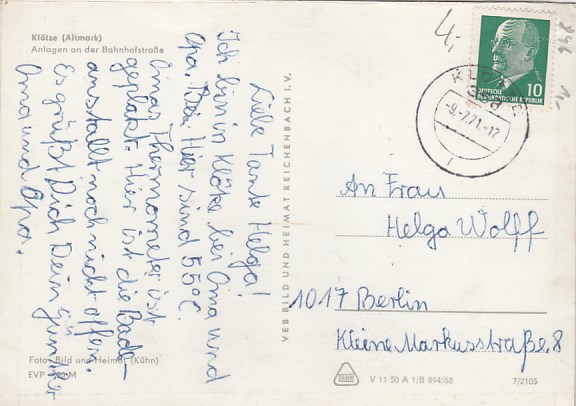 Klötze (Altmark)
Anlagen an der Bahnhofstraße
Liebe Tante Helga!
Ich bin in Klötze bei Oma und
Opa. Hier sind 55°C.
Omas Thermometer ist
geplatzt. Hier ist die Bade-
anstallt noch nicht offen.
Es grüßt Dich Dein Günther
Oma und Opa.
Foto: Bild und Heimat (Kühn)
EVP M
VEB BILD UND HEIMAT REICHENBACH I. V.
4,-
10
DEUTSCHE
DEMOKRATISCHE REPUBLIK
-9.-7.71.-12
An Frau
Helga Wolff
1017 Berlin
Kleine Markusstraße. 8
V 11 50 A 1/B 894/68
7/2105